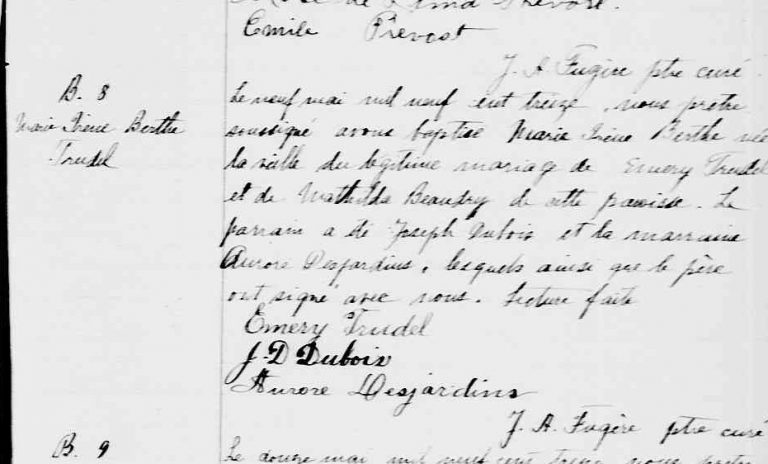 Emile Prevost
J. A. Fugère ptre curé
B. 8
Marie Irène Berthe
Trudel
Le neuf mai mil neuf cent treize, nous prêtre
soussigné avons baptisé Marie Irène Berthe née
la veille du légitime mariage de Emery Trudel
et de Mathilda Beaudry de cette paroisse. Le
parrain a été Joseph Dubois et la marraine
Aurore Desjardins, lesquels ainsi que le père
ont signé avec nous. Lecture faite
Emery Trudel
J. D Dubois
Aurore Desjardins
J. A. Fugère ptre curé
B. 9
Le douze mai mil neuf cent treize nous prêtre